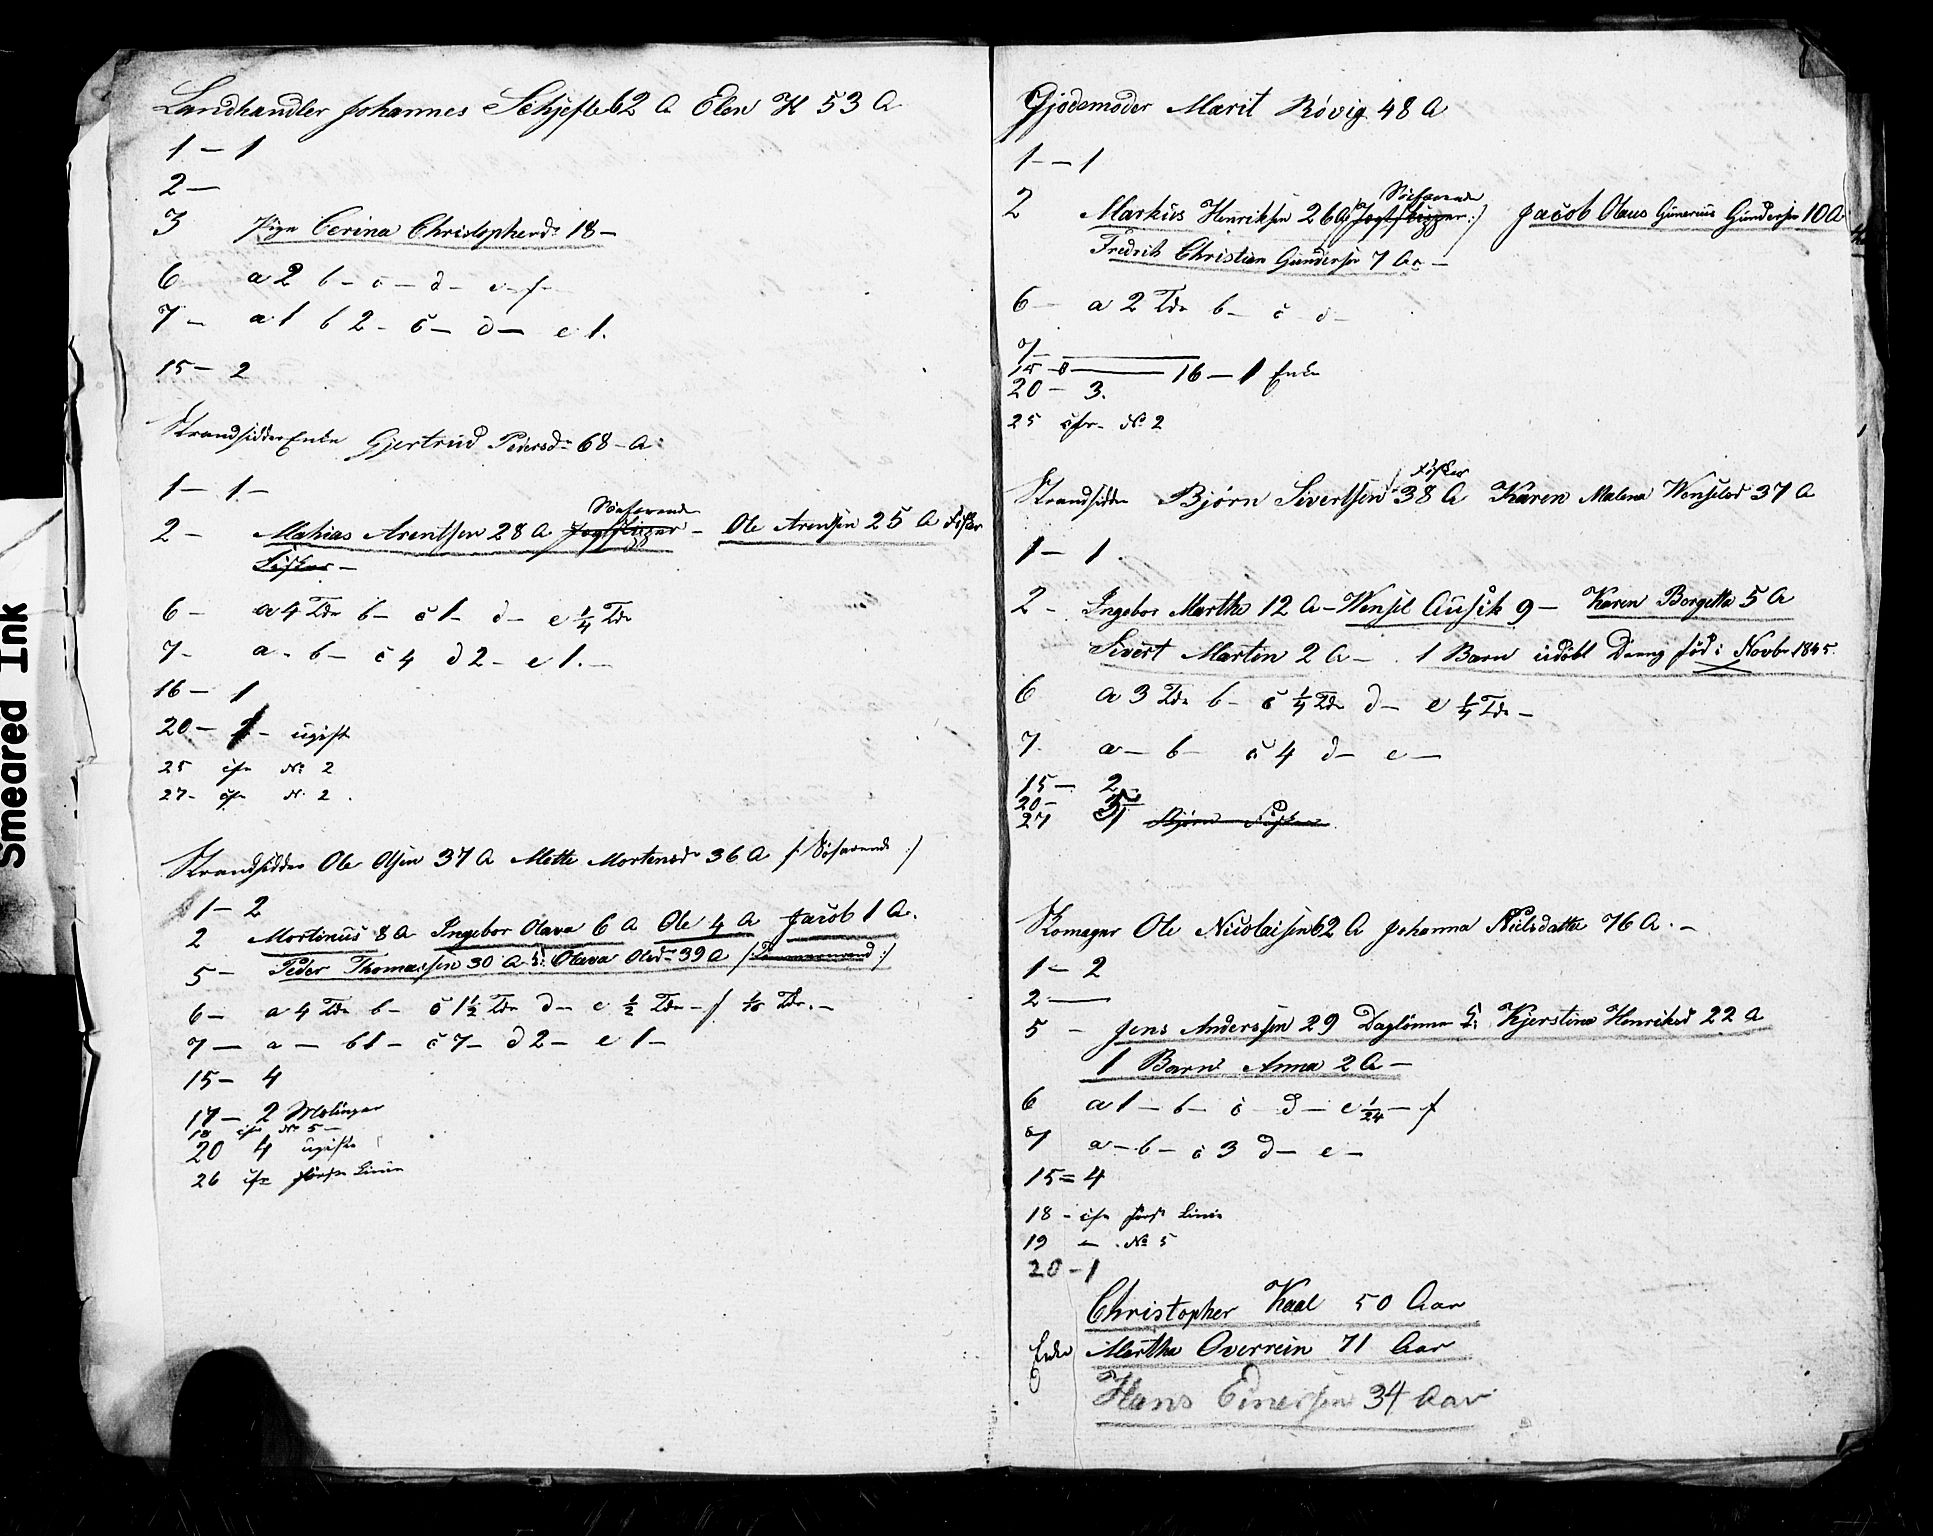 Smeared Ink
Landhandler Johannes Schjefte 62 A Elen H 53 A
1 – 1
2 –
3 Pige Cerina Christopherd: 18 –
6 a 2 b – c – d – e – f –
7 – a 1 b 2 – c – d – e 1.
15 – 2
Strandsidder Enke Gjertrud Pedersd: 68 – A
1 – 1 –
Søefarende
2 – Mathias Arentsen 28 A Jagtskipper – Ole Arentsen 25 A Fisker
Fisker –
6 – a 4 Tdr b – c 1 – d – e 1/4 Tdr
7 – a – b – c 4 d 2 – e 1. –
16 – 1
20 – 2 – ugift
25 cfr No 2
27 – cfr N. 2.
Strandsidder Ole Olsen 37 A Mette Mortensd 36 A /: Søfarende :/
1 – 2
2 Mortinus 8 A Ingebor Olava 6 A Ole 4 A Jacob 1 A.
5 – Peder Thomassen 30 A Olava Olsd 39 A /: Tømmermand :/
6 – a 4 Tdr b – c 1 1/2 Tdr d – e 1/2 Tdr – f 1/16 Tdr. –
7 – a – b 1 – c 7 – d 2 – e 1 –
15 – 4
17 – 2
18 cfr No 5 –
20 4 ugifte
26 cfr første Linie
Gjodemoder Marit Røvig 48 A
1 – – 1
Søfarende
2 Markus Henriksen 26 A /: Jagtskipper :/ Jacob Olaus Gunerius Gundersen 10 A
Fredrik Christian Gundersen 7 A –
6 – a 2 Tdr b – c d –
7 –
15 – 8 – 16 – 1 Enke
20 – 3.
25 cfr – No 2
Fisker
Strandsidder Bjørn Sivertsen 38 A Karen Malena Wensilsd 37 A
1 – 1.
2 – Ingebor Martha 12 A – Wensel Cusik 9 – Karen Borgetta 5 A
Sivert Martin 2 A – . 1 Barn udøbt Dreng fød i Novbr 1845.
6 a 3 Tdr b – c 1/4 Tdr d – e 1/4 Tdr –
7. a – b – c 4 d – e –
15 – 2
20 –
27 1 Bjørn Fisker
Komager Ole Nicolaisen 62 A Johanna Nielsdatter 76 A. –
1 – 2
2 –
5 – Jens Anderssen 29 Daglønner Kjerstina Henriksd 22 A
1 Barn Anna 2 A –
6 a 1 – b – c – d – e 1/24 – f
7 a – b – c 3 d – e –
15 = 4
18 – cfr første Linie
19 – No 5
20 – 1
Christopher Kaal 50 Aar
Enke Martha Overrein 71 Aar
Hans Einersen 34 Aar